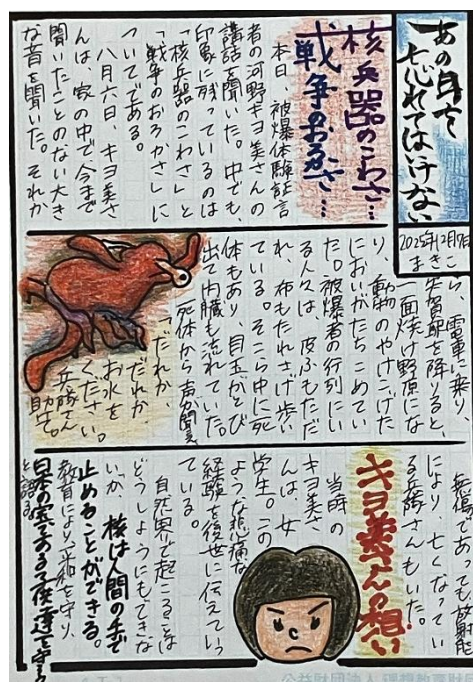 あの日を
忘れてはいけない
2025年12月17日
まきこ
核兵器のこわさ…
戦争のおろかさ…
本日、被爆体験証言
者の河野キヨ美さんの
講話を聞いた。中でも、
印象に残っているのは
「核兵器のこわさ」と
「戦争のおろかさ」に
ついてである。
八月六日、キヨ美さ
んは、家の中で今まで
聞いたことのない大き
な音を聞いた。それか
ら、電車に乗り、
矢賀駅を降りると、
一面焼け野原にな
り、動物のやけこげた
においがたちこめてい
た。被爆者の行列にい
る人々は、皮ふもただ
れ、布もたれさげ歩い
ている。そこら中に死
体もあり、目玉がとび
出て内臓も流れていた。
死体から声が聞え
「だれか、
だれか、
お水を
ください。
兵隊さん
助けて。」
無傷であっても放射能
により亡くなってい
る兵隊さんもいた。
キヨ美さんの想い
当時の
キヨ美さ
んは、女
学生。この
ような悲痛な
経験を後世に伝えていっ
ている。
自然界で起こることは
どうしようにもできな
いが、核は人間の手で
止めることができる。
教育により平和を守り、
日本の宝である子供達を守る
と語る。